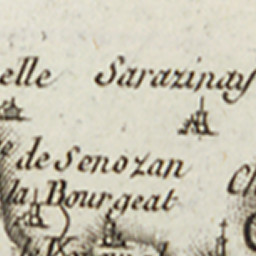 elle Sarazinay
de Senozan
la Bourgeat